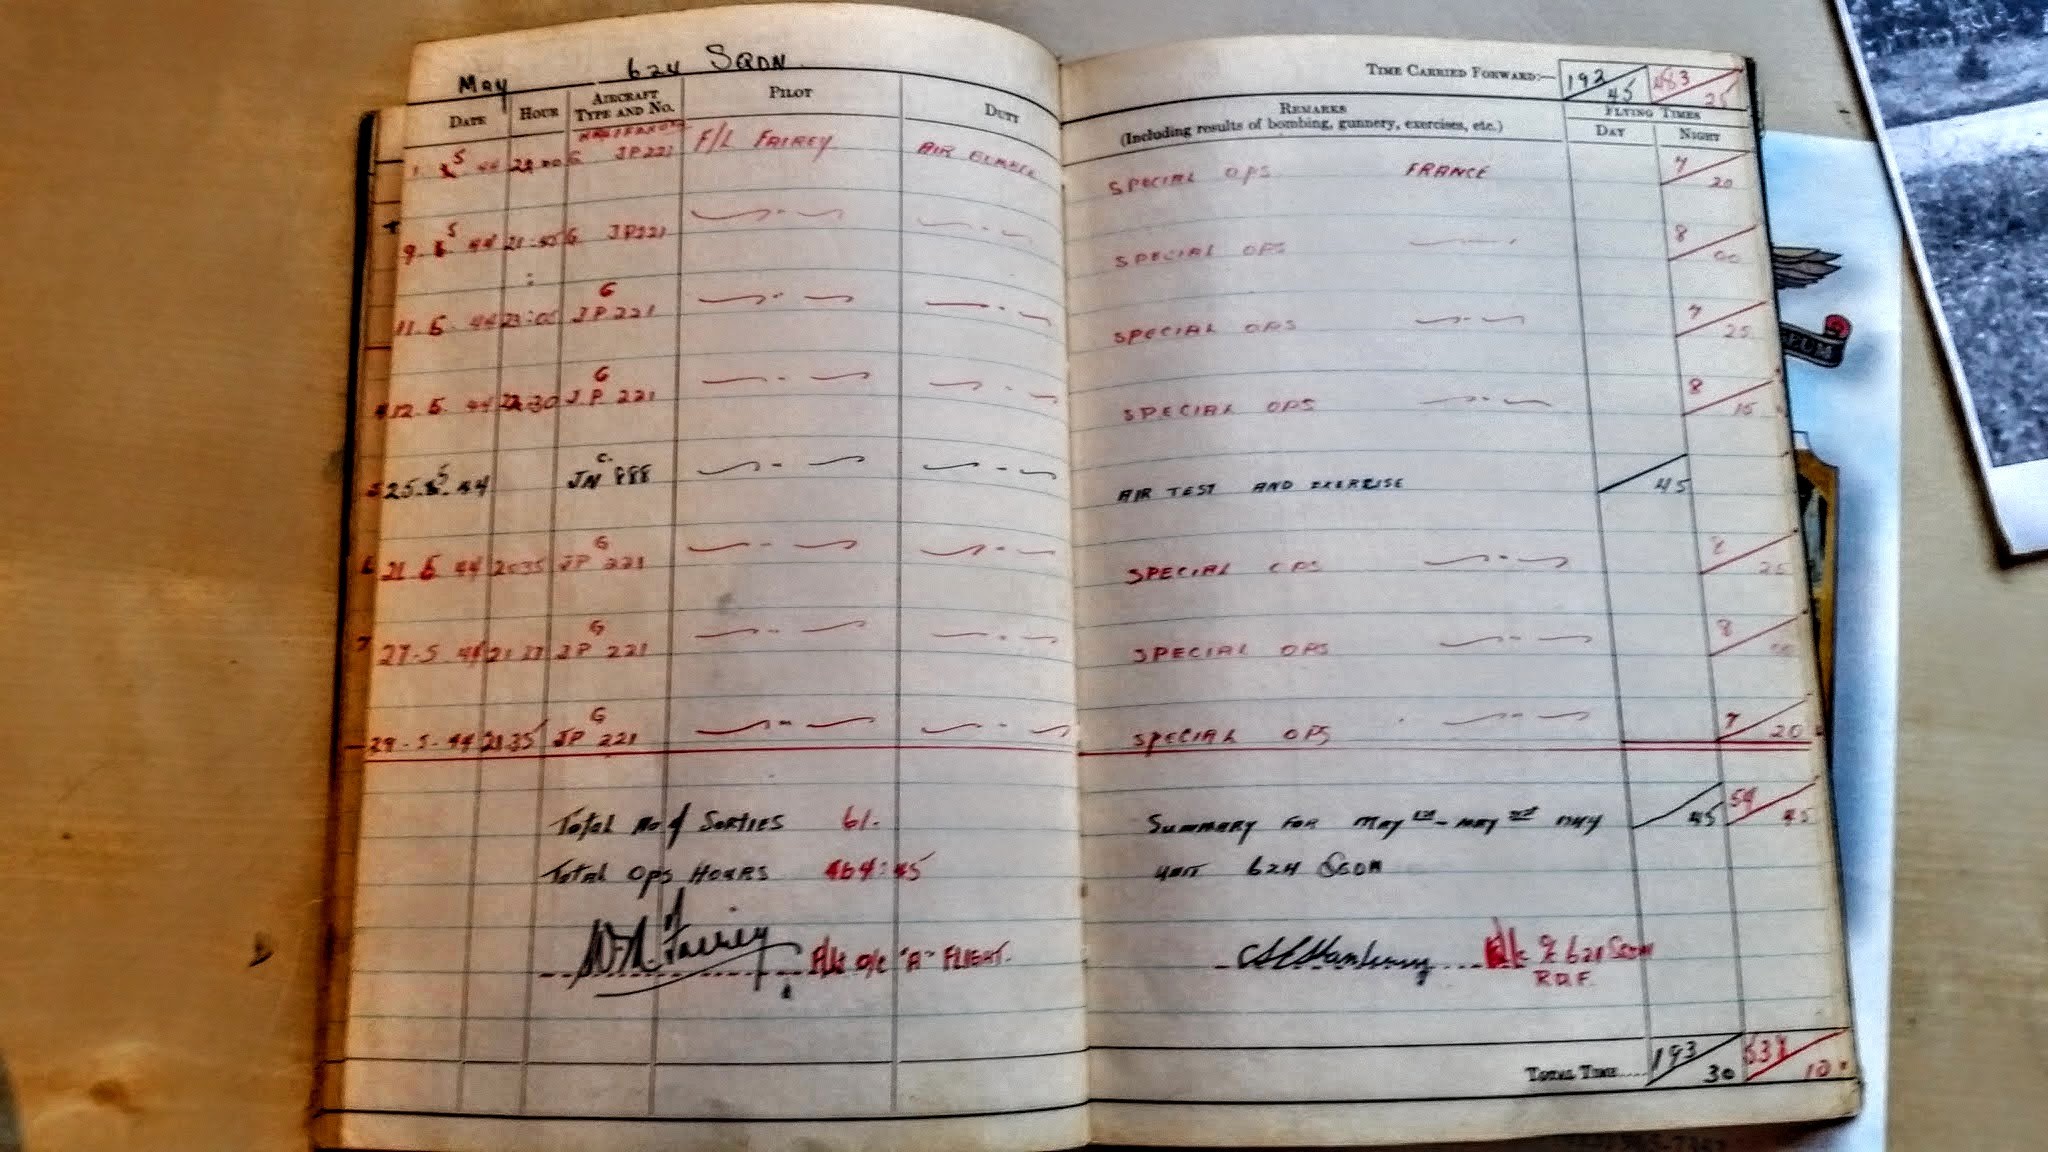 May 624 SQDN.
TIME CARRIED FORWARD:— 192 45 483 25
DATE HOUR AIRCRAFT TYPE AND NO. PILOT DUTY REMARKS (Including results of bombing, gunnery, exercises, etc.) FLYING TIMES DAY NIGHT
1 5 44 G JP221 F/L FAIREY AIR SPECIAL OPS FRANCE 7 20
9. 5 44 G JP221 SPECIAL OPS 8 00
11. 5. 44 23:05 G JP 221 SPECIAL OPS 7 25
12. 5. 44 22:30 G JP 221 SPECIAL OPS 8 15
5 25. 5. 44 C. JN 888 AIR TEST AND EXERCISE 45
6 21 5 44 G JP 221 SPECIAL OPS 25
7 27-5. 44 G JP 221 SPECIAL OPS 8 00
29-5-44 21 35 G JP 221 SPECIAL OPS 7 20
Total No of SORTIES 61. SUMMARY FOR MAY 1ST - MAY 1944 45 54 45
Total Ops HOURS 464:45 UNIT 624 SQDN
Fairey F/Lt o/c "A" FLIGHT. CS Stanbury o/c 624 SQDN
R.A.F.
TOTAL TIME..... 193 30 538 10
EUM